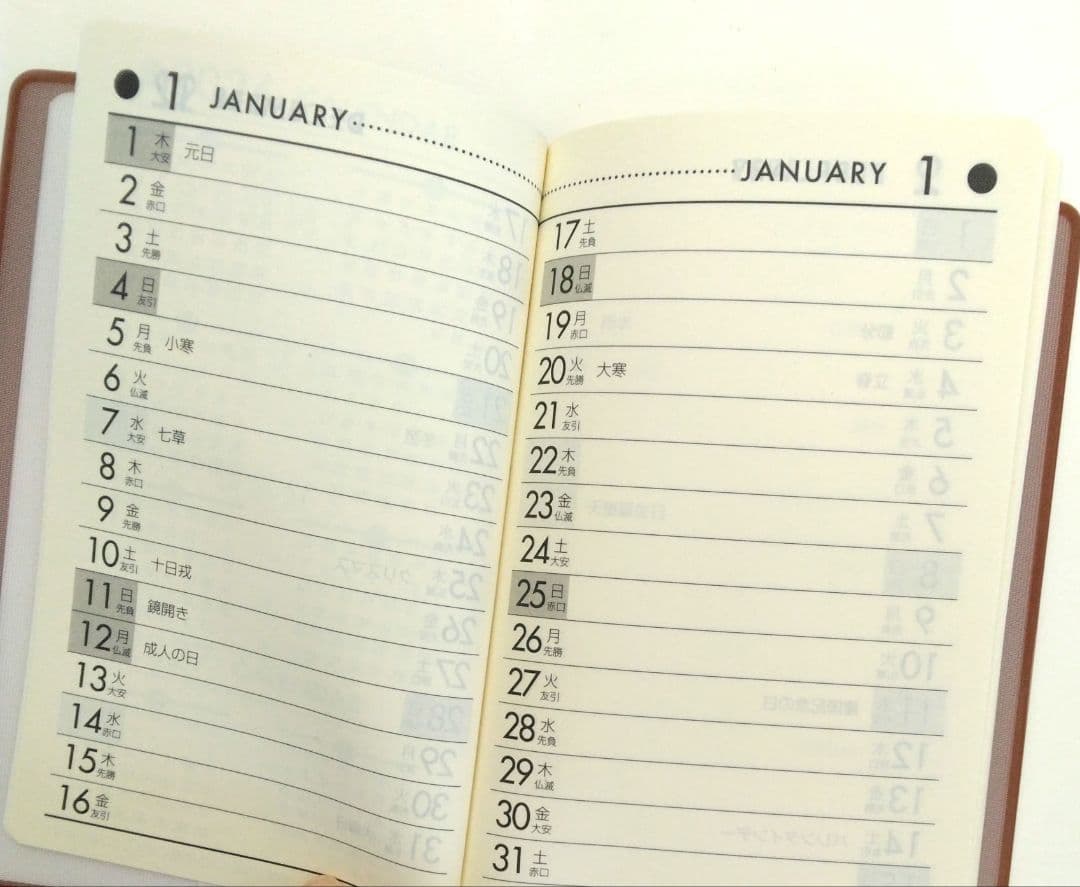 ● 1 JANUARY
1 木 大安 元日
2 金 赤口
3 土 先勝
4 日 友引
5 月 先負 小寒
6 火 仏滅
7 水 大安 七草
8 木 赤口
9 金 先勝
10 土 友引 十日戎
11 日 先負 鏡開き
12 月 仏滅 成人の日
13 火 大安
14 水 赤口
15 木 先勝
16 金 友引
JANUARY 1 ●
17 土 先負
18 日 仏滅
19 月 赤口
20 火 先勝 大寒
21 水 友引
22 木 先負
23 金 仏滅
24 土 大安
25 日 赤口
26 月 先勝
27 火 友引
28 水 先負
29 木 仏滅
30 金 大安
31 土 赤口